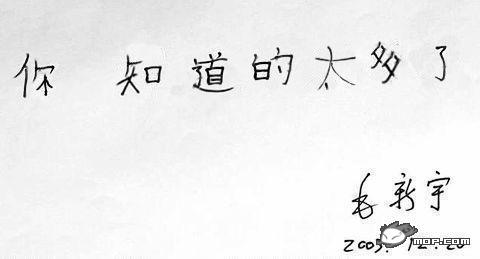 你 知道的太多了
毛新宇
2003.12.20
MOP.COM